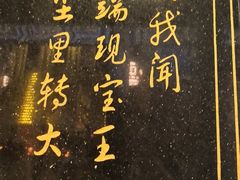 我闻
端现宝王
尘里转大